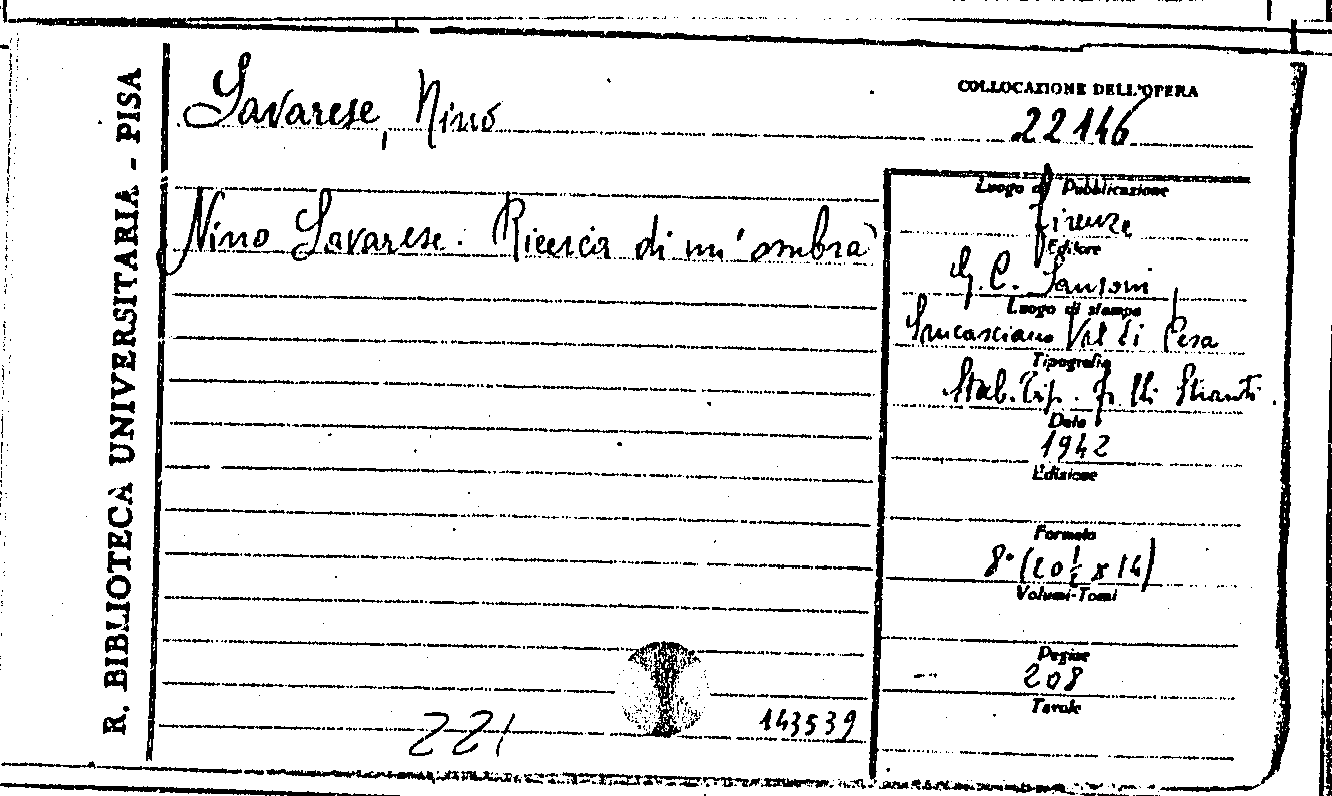 R. BIBLIOTECA UNIVERSITARIA - PISA
Savarese, Nino
COLLOCAZIONE DELL'OPERA
22146
Nino Savarese. Ricerca di un'ombra
Luogo di Pubblicazione
Firenze
Editore
G. C. Sansoni
Luogo di stampa
Val di Pesa
Tipografia
Stab. Tip. F.lli Stianti.
Data
1942
Edizione
Formato
8° (20 1/2 x 14)
Volumi-Tomi
Pagine
208
Tavole
221
143539